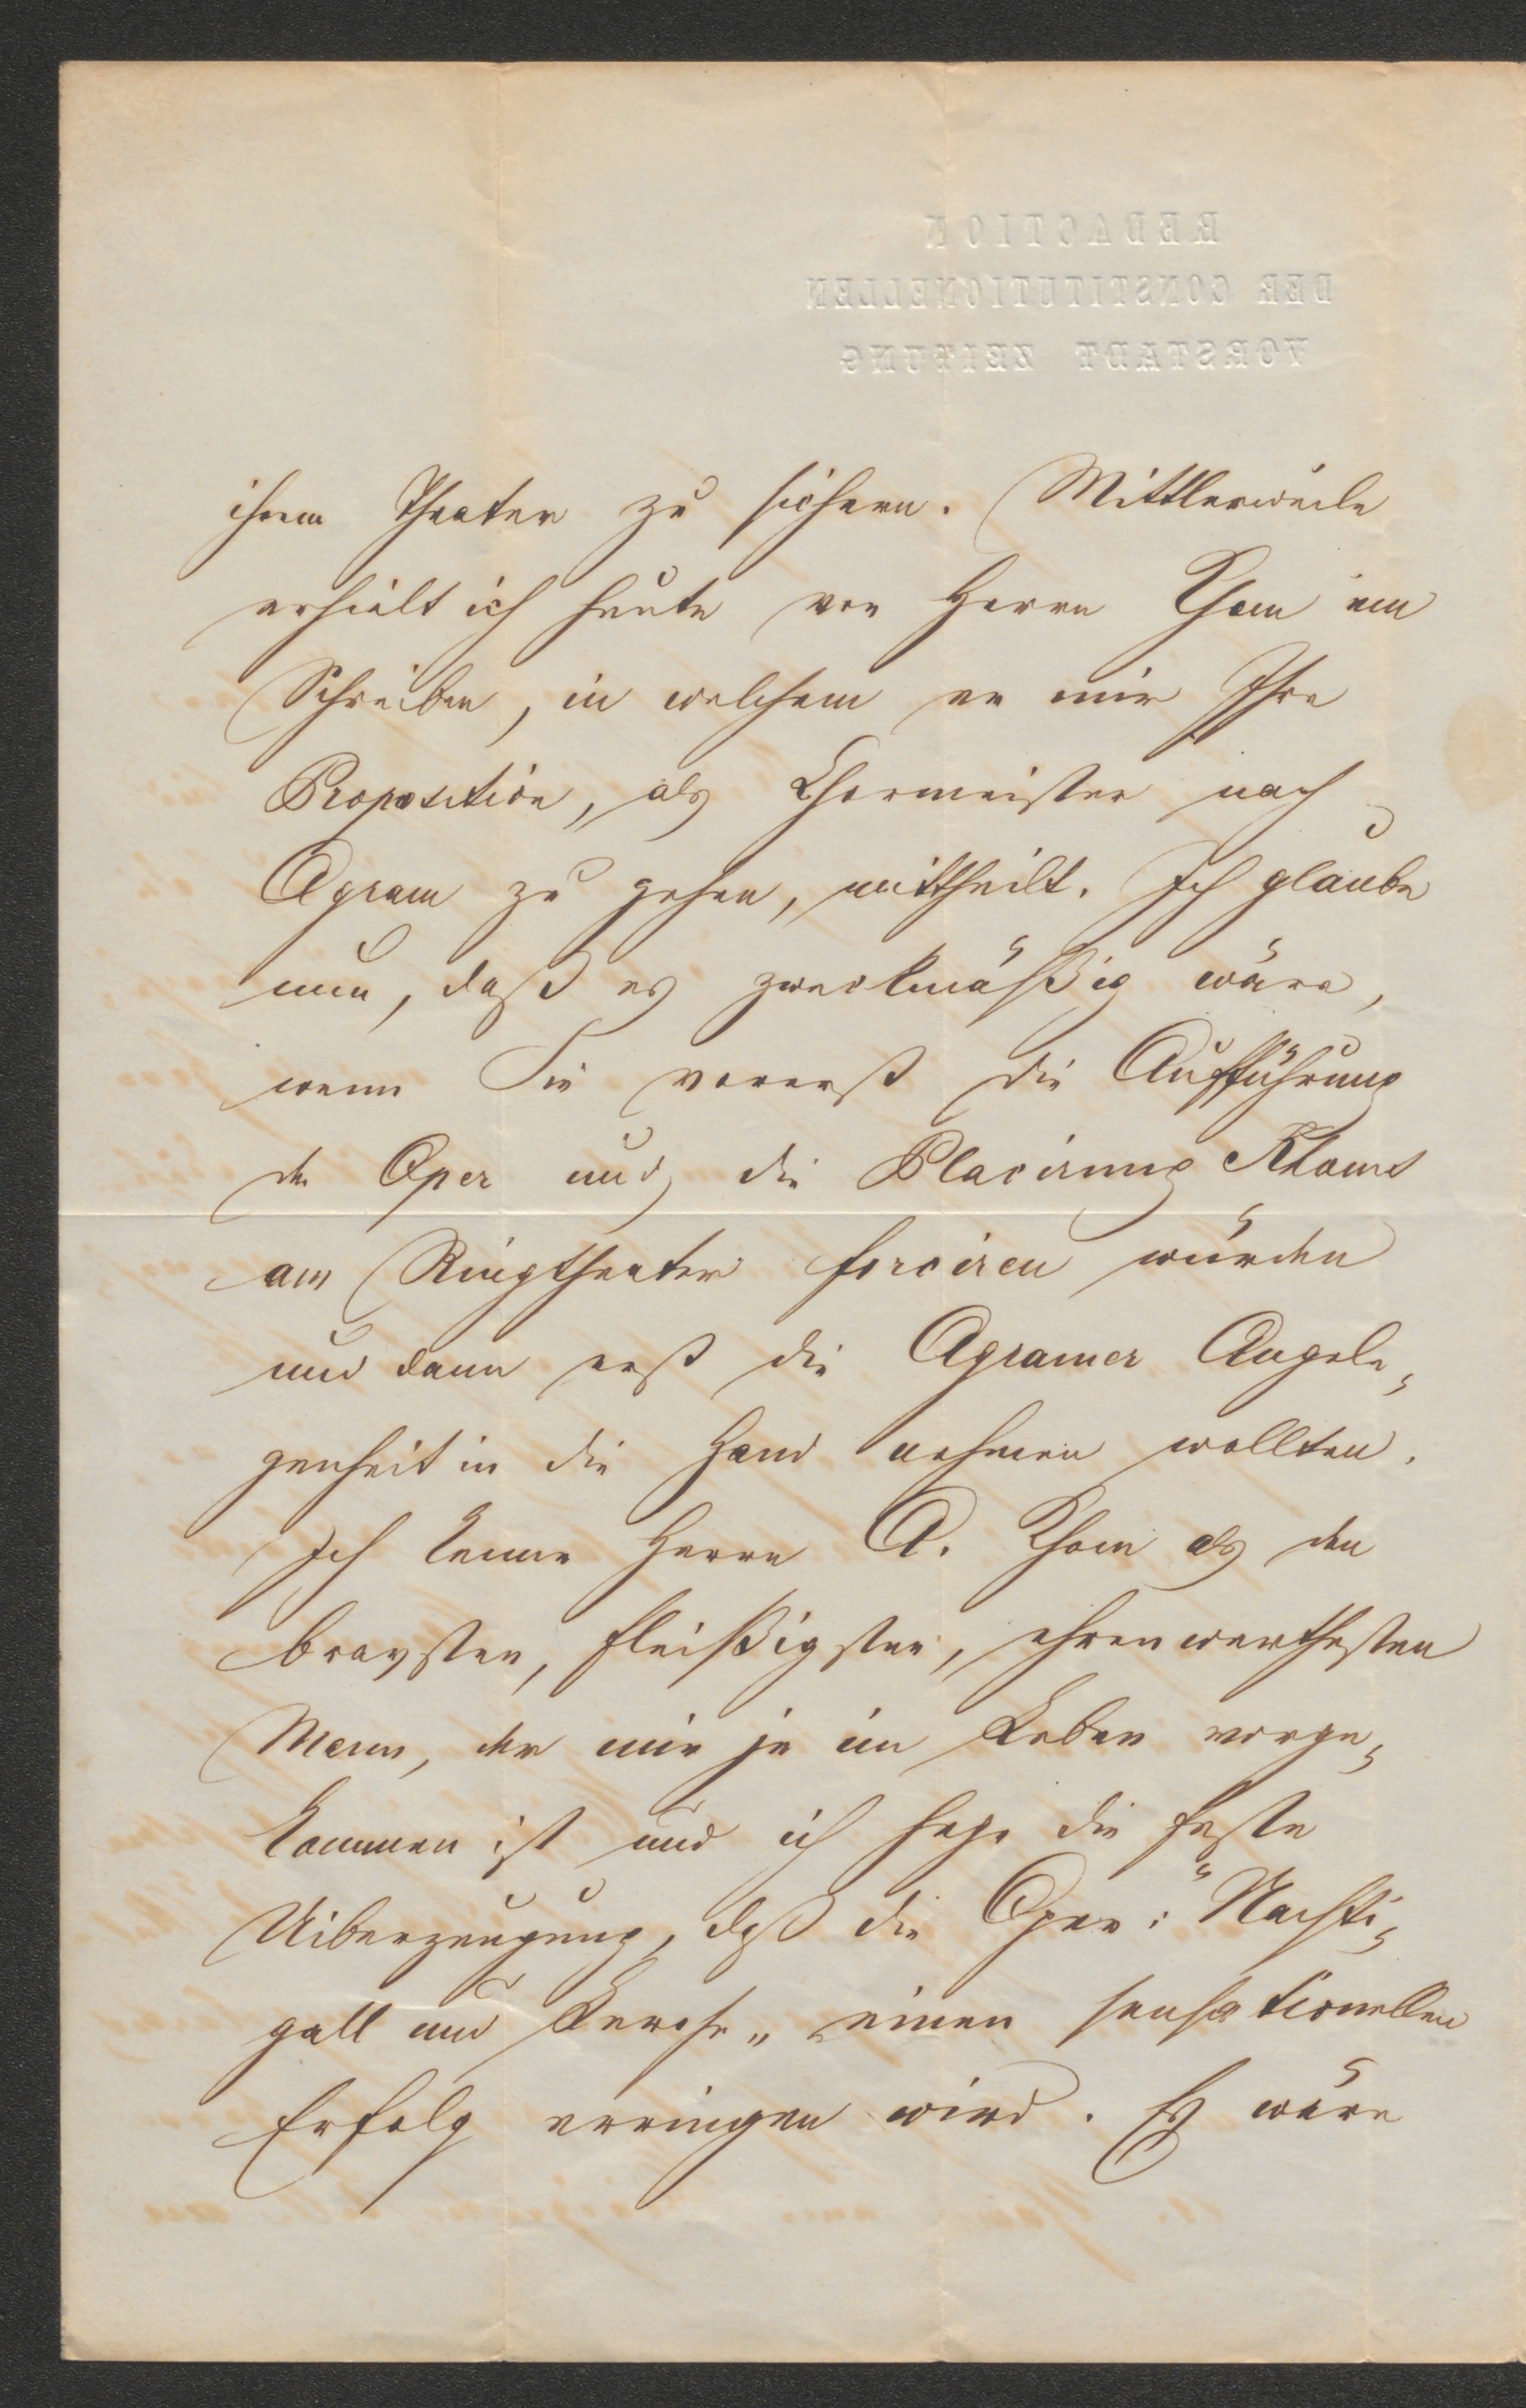 REDACTION
DER CONSTITUTIONELLEN
VORSTADT ZEITUNG
ihrem Theater zu sichern. Mittlerweile
erhielt ich heute von Herrn Khom ein
Schreiben, in welchem er mir Ihre
Proposition, als Chormeister nach
Agram zu gehen, mittheilt. Ich glaube
nun, daß es zweckmäßig wäre,
wenn Sie vorerst die Aufführung
der Oper und die Placirung Khoms
am Ringtheater forciren würden
und dann erst die Agramer Angele-
genheit in die Hand nehmen wollten.
Ich kenne Herrn A. Khom als den
bravsten, fleißigsten, ehrenwerthesten
Mann, der mir je im Leben vorge-
kommen ist und ich hege die feste
Uiberzeugung, daß die Oper: "Nachti-
gall und Lerche" einen sensationellen
Erfolg erringen wird. Es wäre